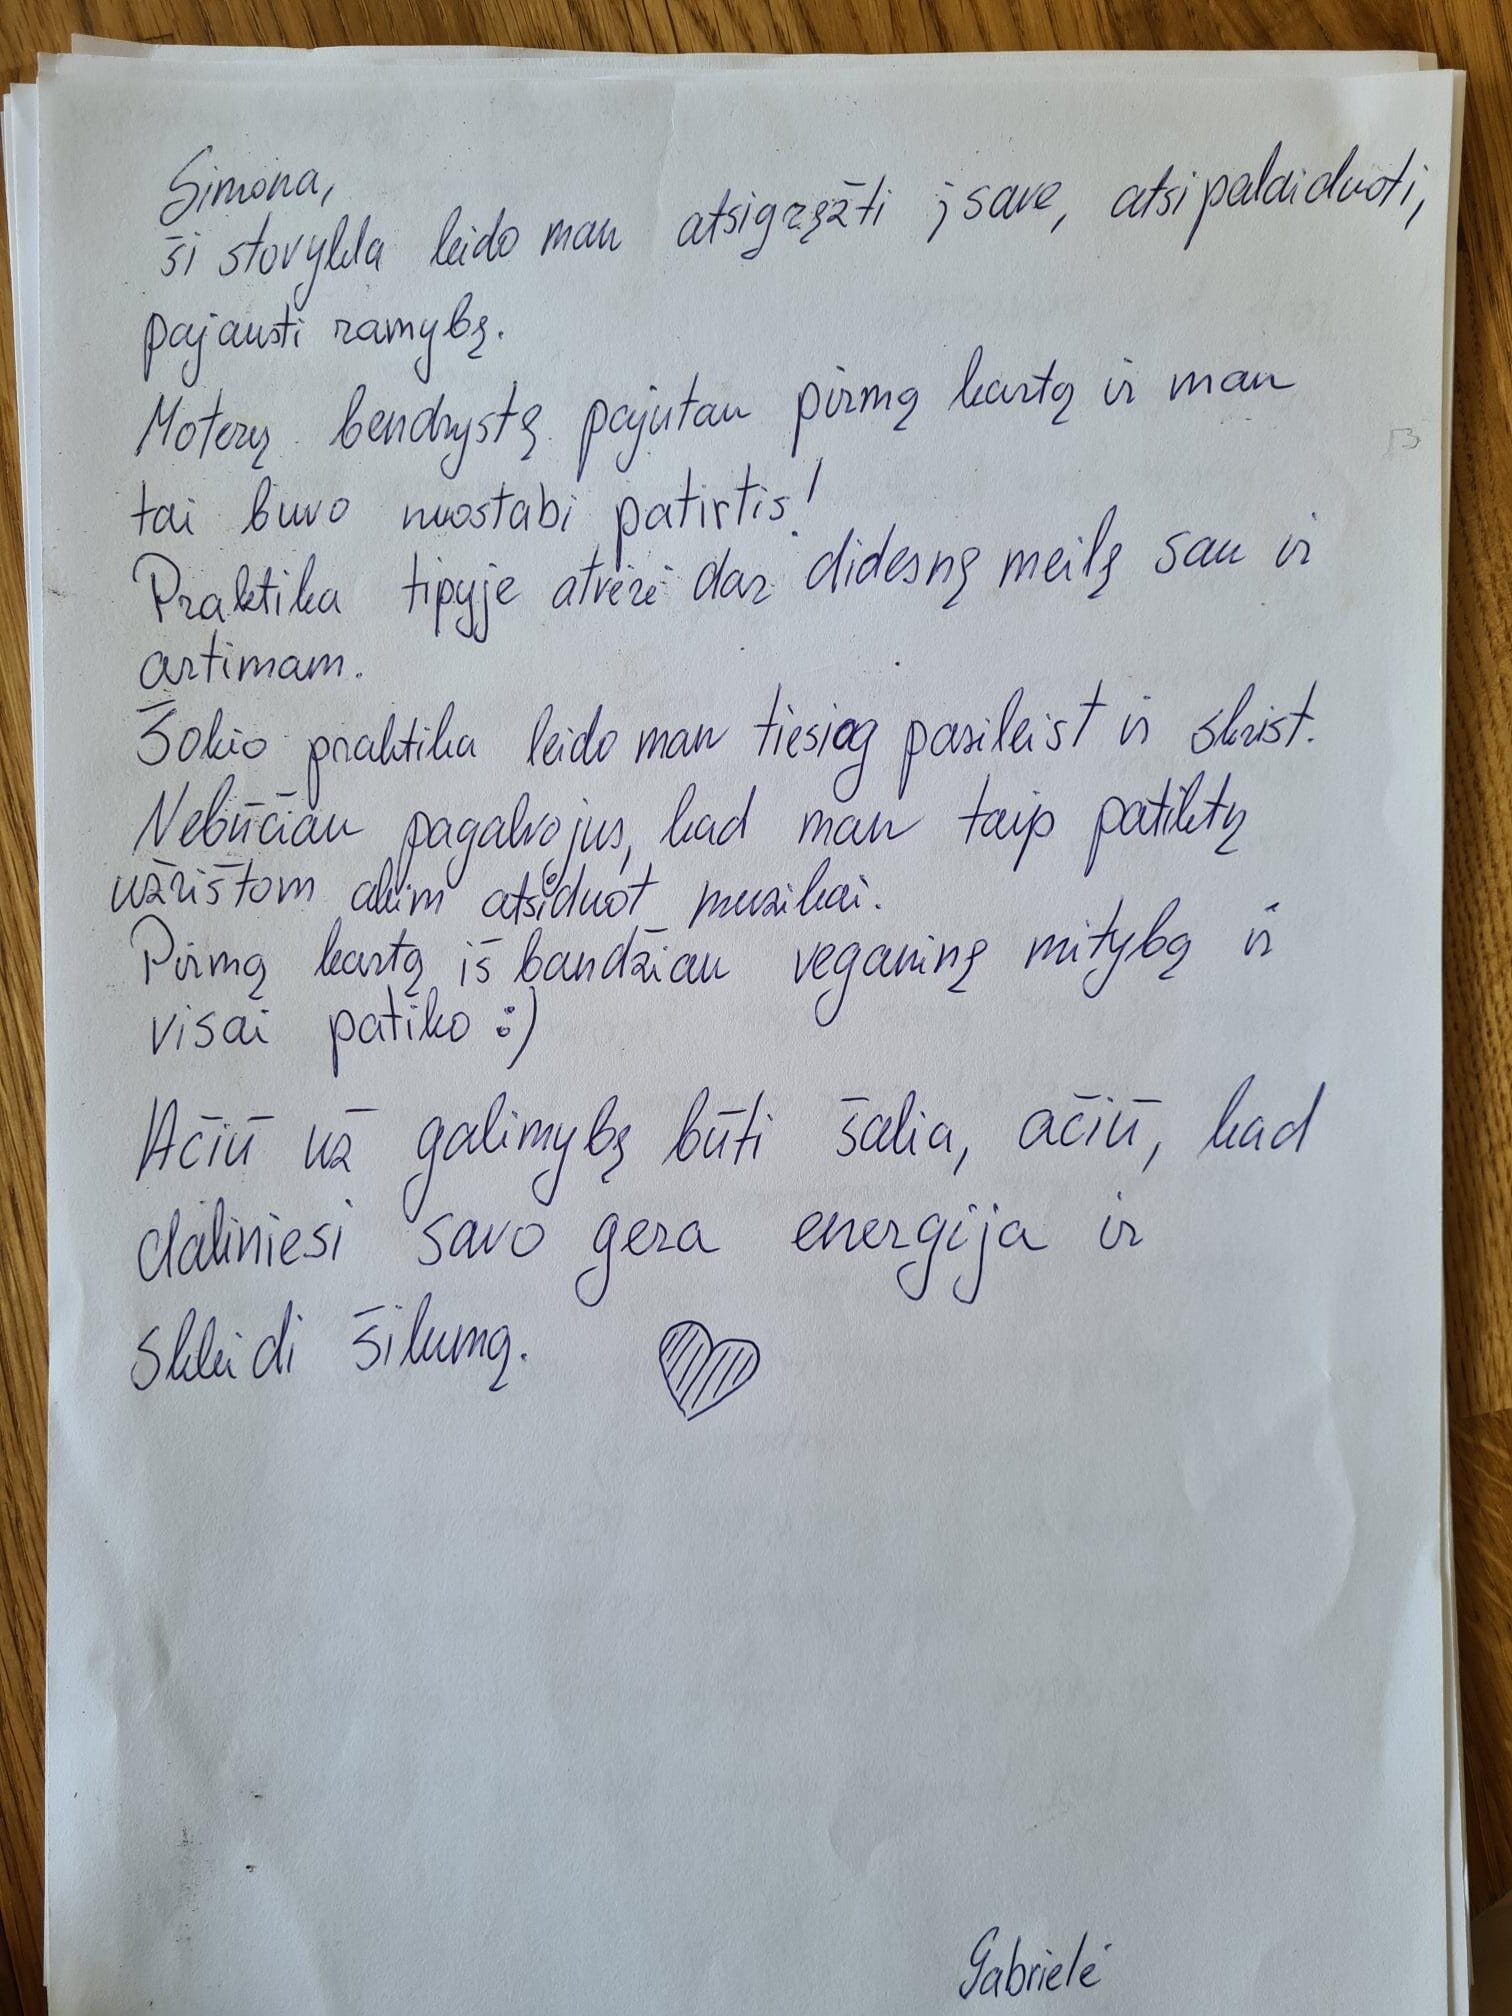 Simona,
ši stovykla leido man atsigręžti į save, atsipalaiduoti,
pajausti ramybę.
Moterų bendrystę pajutau pirmą kartą ir man
tai buvo nuostabi patirtis!
Praktika tipyje atvėrė dar didesnę meilę sau ir
artimam.
Šokio praktika leido man tiesiog pasileist ir skrist.
Nebūčiau pagalvojus, kad man taip patiktų
užrištom akim atsiduot muzikai.
Pirmą kartą išbandžiau veganinę mitybą ir
visai patiko :)
Ačiū už galimybę būti šalia, ačiū, kad
daliniesi savo gera energija ir
skleidi šilumą.
Gabrielė